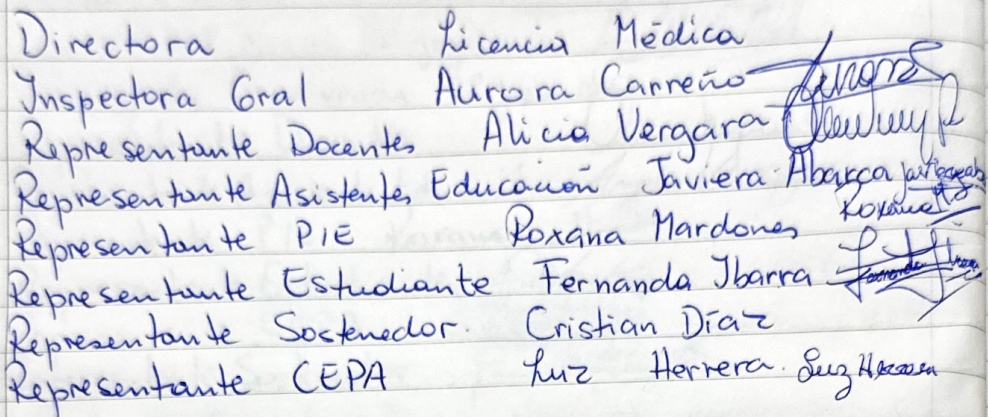 Directora Licencia Médica
Inspectora Gral Aurora Carreño
Representante Docentes Alicia Vergara
Representante Asistentes Educación Javiera Abarca
Representante PIE Roxana Mardones Roxana
Representante Estudiante Fernanda Ibarra
Representante Sostenedor. Cristian Díaz
Representante CEPA Luz Herrera. Luz Herrera